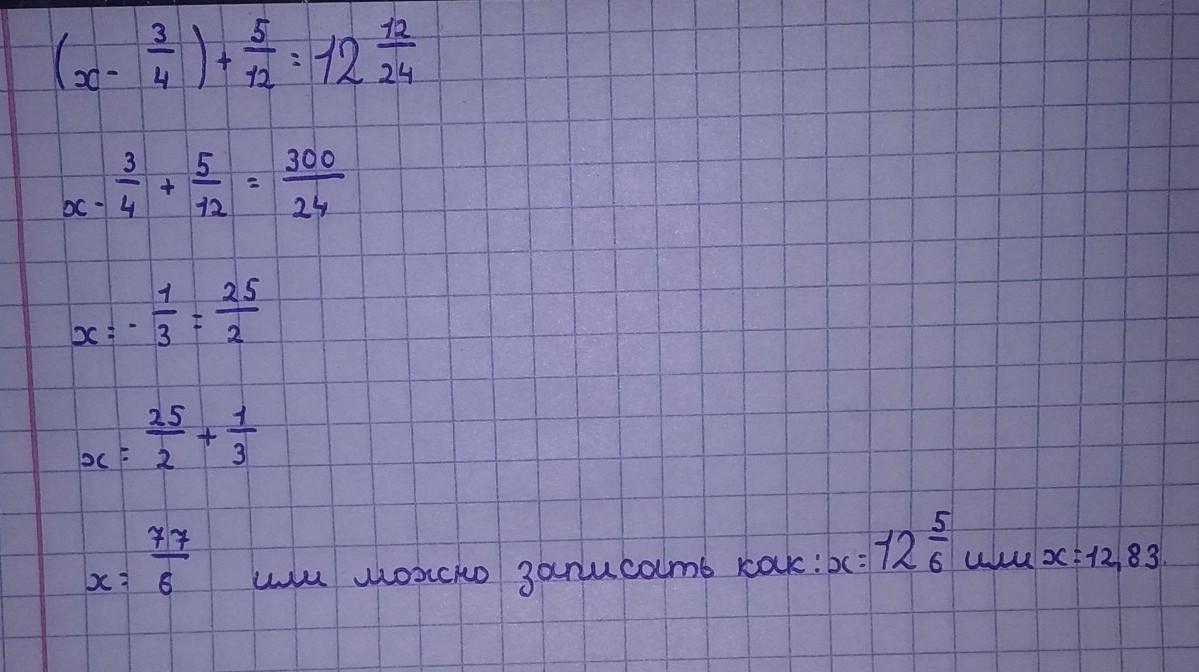 (x - 3/4) + 5/12 = 12 12/24
x - 3/4 + 5/12 = 300/24
x = - 1/3 = 25/2
x = 25/2 + 1/3
x = 77/6 или можно записать как: x = 12 5/6 или x = 12,83.